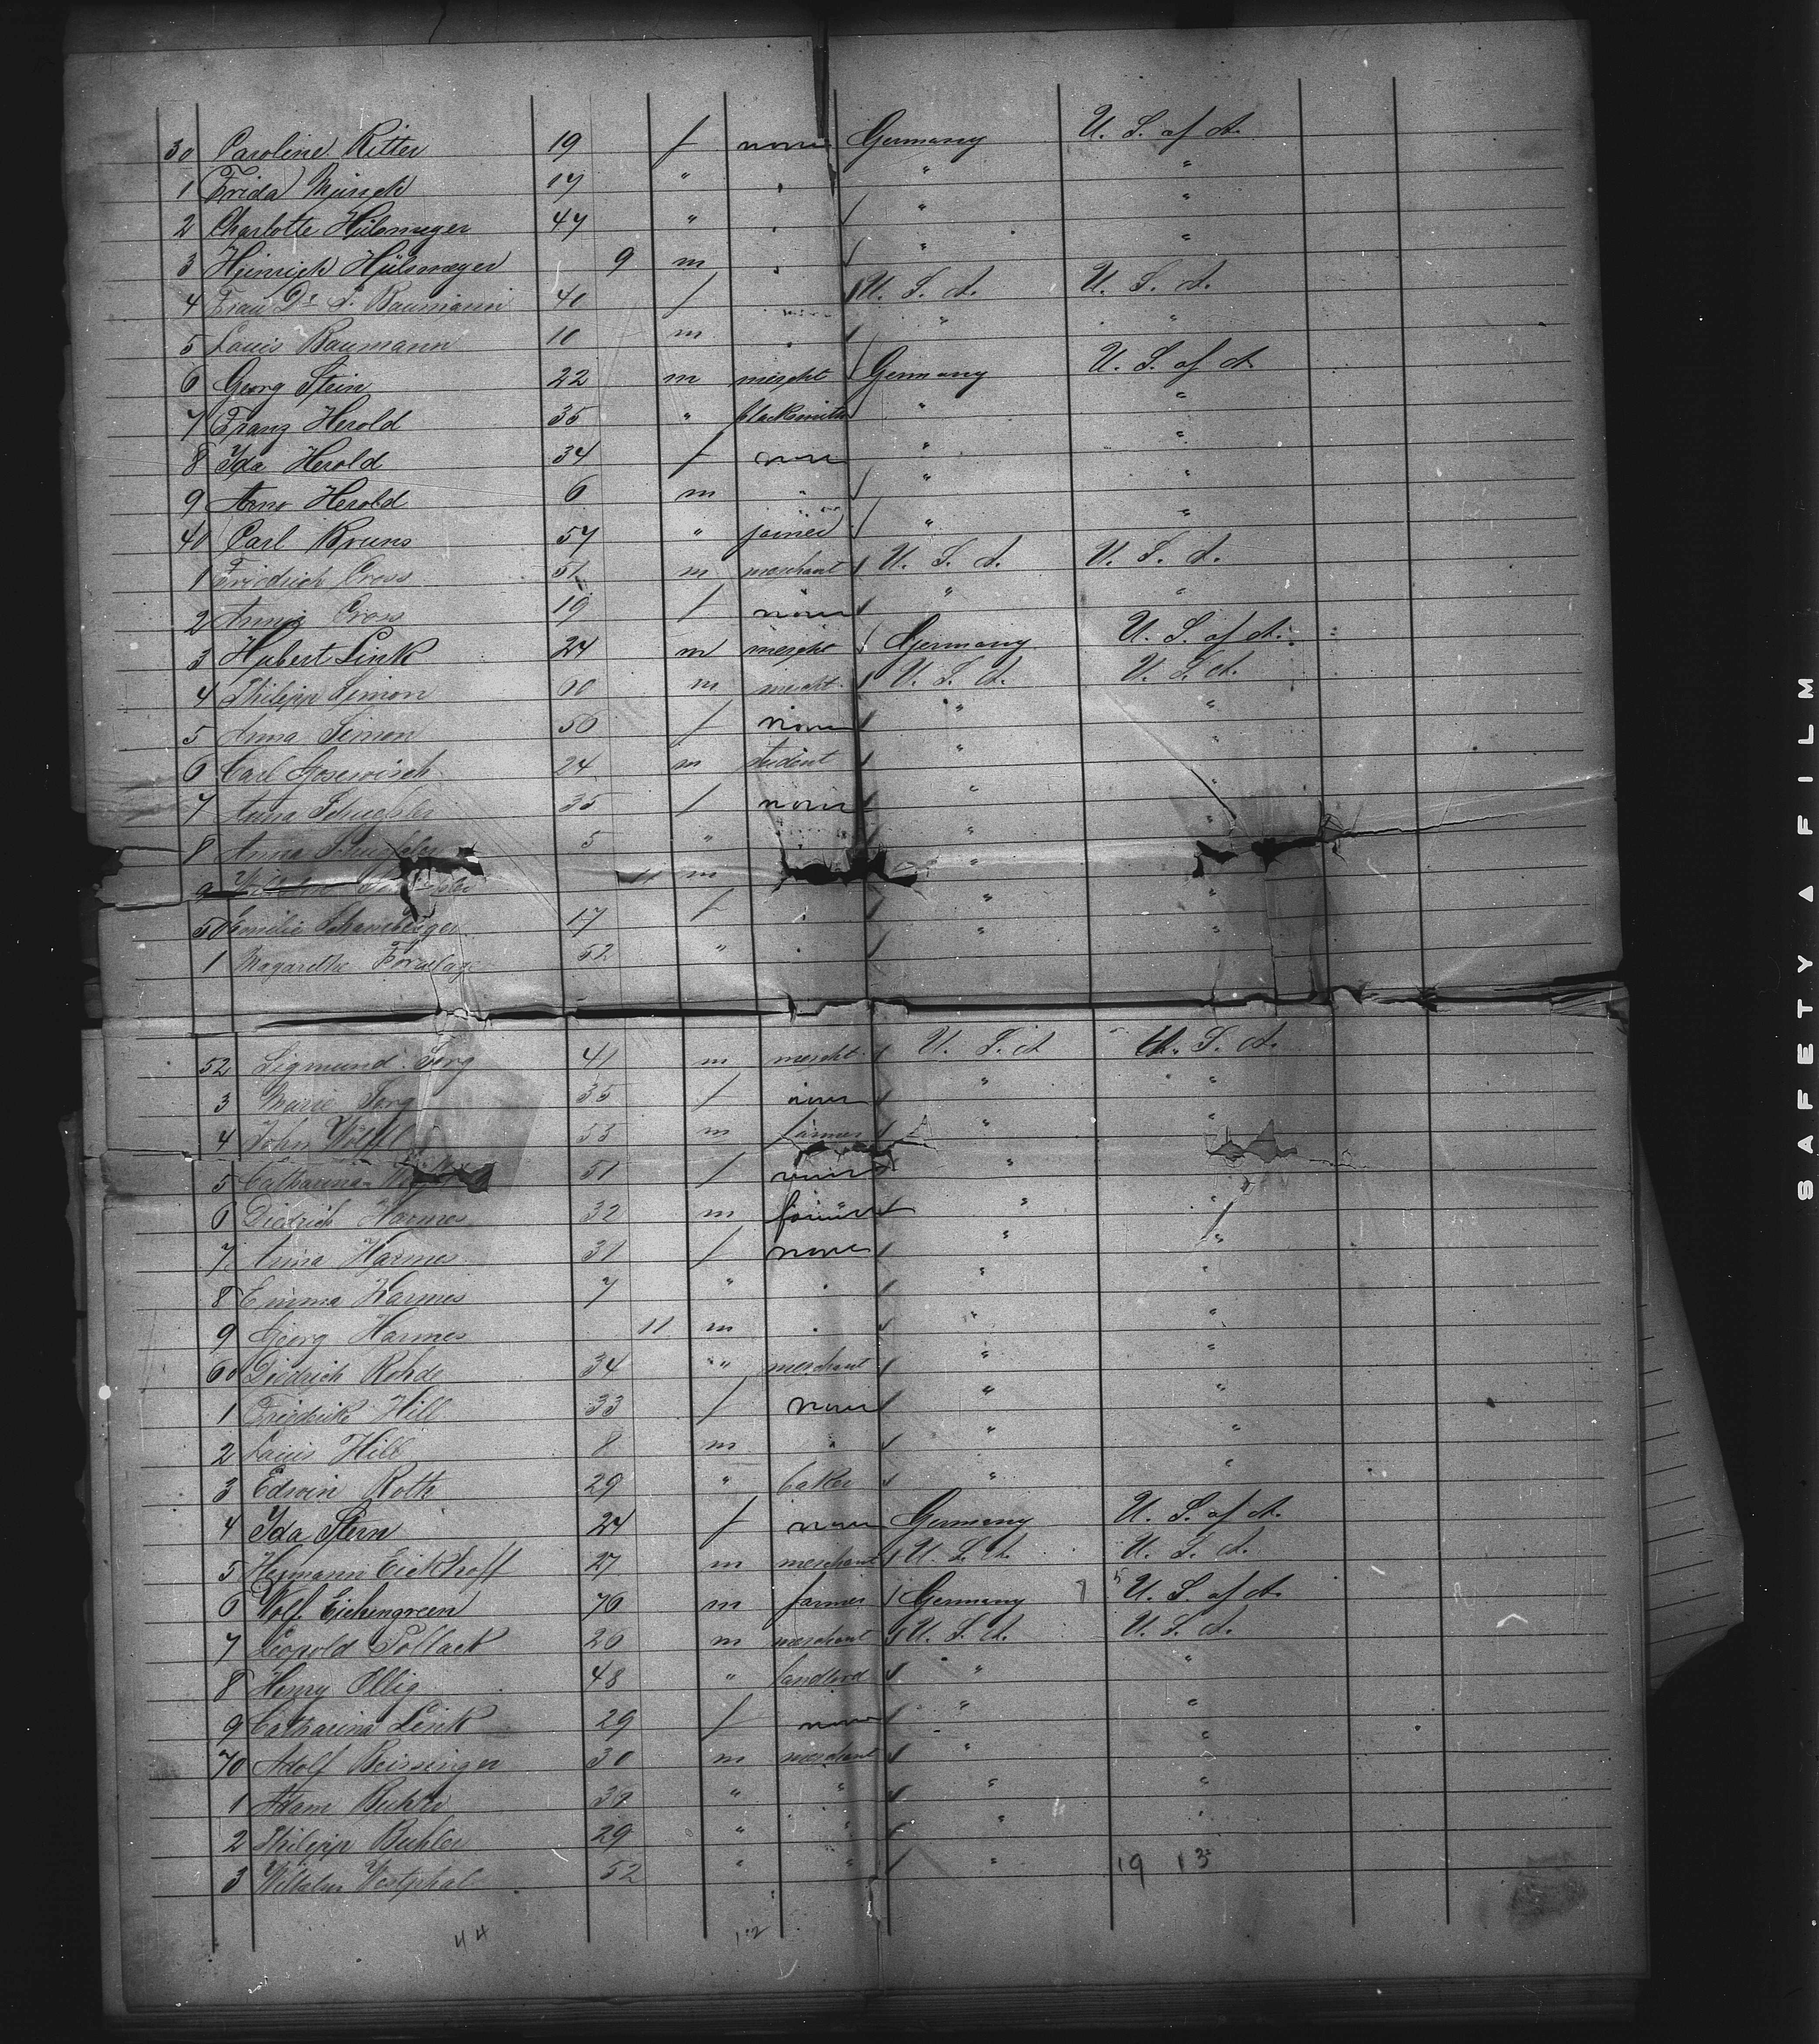 30 Caroline Ritter 19 f none Germany U. S. of A.
1 Frida Münch 17 " " " "
2 Charlotte Hülsmeyer 47 " " " "
3 Heinrich Hülsmeyer 9 m " " "
4 Frau Dr. Baumann 40 f U. S. A. U. S. A.
5 Louis Baumann 10 m " " "
6 Georg Stein 22 m mercht Germany U. S. of A.
7 Franz Herold 35 " blacksmith " "
8 Ida Herold 34 f none " "
9 Arno Herold 6 m " " "
40 Carl Bruns 57 " joiner " "
1 Friedrich Cress 51 m merchant U. S. A. U. S. A.
2 Annie Cross 19 f none " "
3 Hubert Link 24 m mercht Germany U. S. of A.
4 Philipp Simon 60 m mercht. U. S. A. U. S. A.
5 Anna Simon 56 f none " "
6 Carl Gosewisch 24 m student " "
7 Anna 35 f none " "
8 Anna 5 " " " "
9 11 m " "
50 Emilie 17 f " " "
1 Magarethe 52 " " " "
52 Sigmund 41 m mercht. U. S. A U. S. A.
3 Marie 35 f none " "
4 John Wölfl 53 m farmer " "
5 Catharina 51 f none "
6 Diedrich Harmes 32 m farmer " "
7 Anna Harmes 31 f none " "
8 Emma Harmes 7 " " " "
9 Georg Harmes 11 m " " "
60 Diedrich Rohde 34 " merchant " "
1 Friederike Hill 33 f none " "
2 Louis Hill 8 m " " "
3 Edwin Roth 29 " baker " "
4 Ida Stern 24 f none Germany U. S. of A.
5 Hermann Eickhoff 27 m merchant U. S. A. U. S. A.
6 Wolf Eichengreen 76 m farmer Germany U. S. of A.
7 Leopold Pollack 26 m merchant U. S. A. U. S. A.
8 Henry Ollig 48 " landlord " "
9 Catharina Link 29 f none " "
70 Adolf Beissinger 30 m merchant " "
1 Adam 39 " " " "
2 Philipp Buhler 29 " " " "
3 Wilhelm Westphal 52 " " "
19 13
44 12
SAFETY A FILM